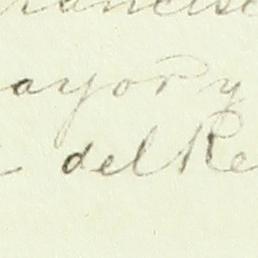 rancisc
ayor y
del Re